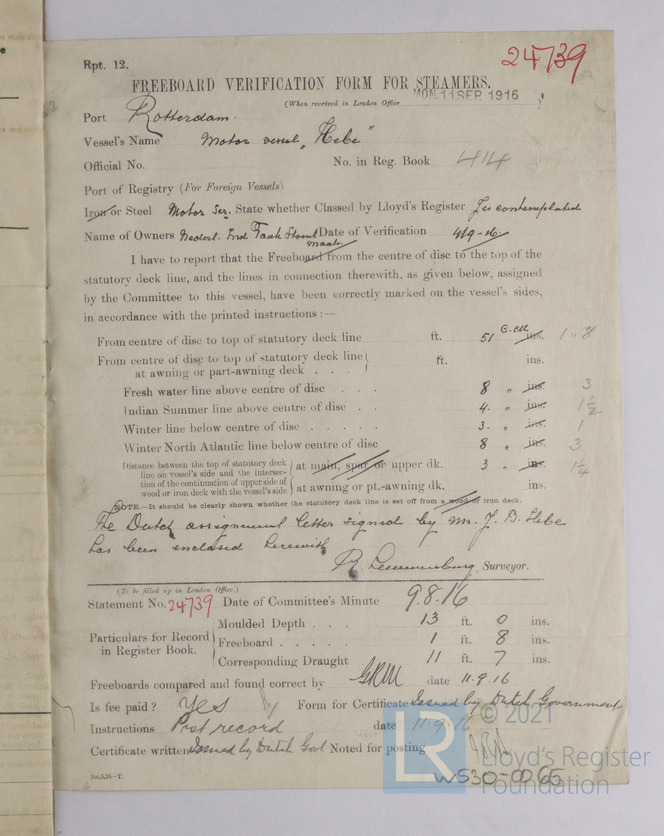 Rpt. 12.
24739
FREEBOARD VERIFICATION FORM FOR STEAMERS.
(When received in London Office MON. 11 SEP 1916
Port Rotterdam.
Vessel's Name Motor vessel „Hebe"
Official No. No. in Reg. Book 414
Port of Registry (For Foreign Vessels)
Iron or Steel Motor Scr. State whether Classed by Lloyd's Register Yes contemplated
Name of Owners Nederl. Ind Tank Stoomb Maats Date of Verification 4/9-16
I have to report that the Freeboard from the centre of disc to the top of the
statutory deck line, and the lines in connection therewith, as given below, assigned
by the Committee to this vessel, have been correctly marked on the vessel's sides,
in accordance with the printed instructions :—
From centre of disc to top of statutory deck line ft. 51 c.m. ins. 1 " 8
From centre of disc to top of statutory deck line
at awning or part-awning deck . . . ft. ins.
Fresh water line above centre of disc . . . 8 „ ins. 3
Indian Summer line above centre of disc . . 4. „ ins. 1½
Winter line below centre of disc . . . . . 3. „ ins. 1
Winter North Atlantic line below centre of disc 8 „ ins. 3
Distance between the top of statutory deck
line on vessel's side and the intersec-
tion of the continuation of upper side of
wood or iron deck with the vessel's side
at main, spar or upper dk. 3 „ ins. 1¼
at awning or pt.-awning dk. ins.
NOTE.—It should be clearly shown whether the statutory deck line is set off from a wood or iron deck.
The Dutch assignment letter signed by Mr. J. B.
has been enclosed herewith
Surveyor.
(To be filled up in London Office.)
Statement No. 24739 Date of Committee's Minute 9.8.16
Particulars for Record
in Register Book.
Moulded Depth . . . 13 ft. 0 ins.
Freeboard . . . . . 1 ft. 8 ins.
Corresponding Draught 11 ft. 7 ins.
Freeboards compared and found correct by GRM date 11.9.16
Is fee paid ? Yes Form for Certificate Issued by Dutch Government
Instructions Post record date 11.9.16
Certificate written Issued by Dutch Govt Noted for posting
2m,5,15—T.
© 2021
LR
Lloyd's Register
Foundation
W530-0065